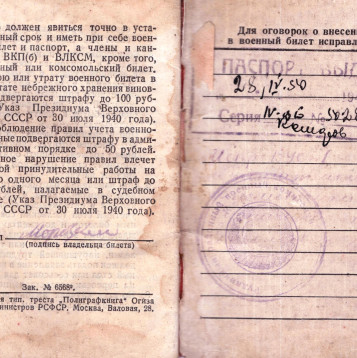 должен явиться точно в уста-
ный срок и иметь при себе воен-
илет и паспорт, а члены и кан-
ВКП(б) и ВЛКСМ, кроме того,
ный или комсомольский билет.
ю или утрату военного билета в
тате небрежного хранения винов-
двергаются штрафу до 100 руб-
Указ Президиума Верховного
СССР от 30 июля 1940 года).
облюдение правил учета военно-
ные подвергаются штрафу в адм-
тивном порядке до 50 рублей.
ное нарушение правил влечет
ой принудительные работы на
о одного месяца или штраф до
ублей, налагаемые в судебном
е (Указ Президиума Верховного
СССР от 30 июля 1940 года).
(подпись владельца билета)
Зак. № 6568в.
я тип. треста „Полиграфкнига" Огиза
инистров РСФСР, Москва, Валовая, 28.
Для оговорок о внесен
в военный билет исправл
ПАСПОРТ ВЫД
28. IV. 50
Серия